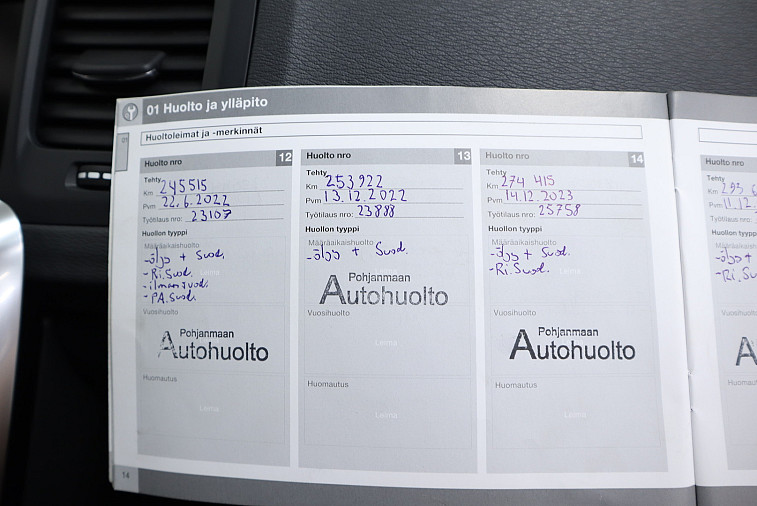 01 Huolto ja ylläpito
01
Huoltoleimat ja -merkinnät
Huolto nro 12
Tehty
Km 245515
Pvm 22.6.2022
Työtilaus nro: 23107
Huollon tyyppi
Määräaikaishuolto
-öljy + Suod.
-Ri.Suod.
-ilmansuod.
-PA.Suod.
Leima
Vuosihuolto
Pohjanmaan
Autohuolto
Huomautus
Leima
14
Huolto nro 13
Tehty
Km 253922
Pvm 13.12.2022
Työtilaus nro: 23898
Huollon tyyppi
Määräaikaishuolto
-öljy + Suod.
Pohjanmaan
Autohuolto
Vuosihuolto
Leima
Huomautus
Leima
Huolto nro 14
Tehty
Km 274 415
Pvm 14.12.2023
Työtilaus nro: 25758
Huollon tyyppi
Määräaikaishuolto
-öljy + Suod.
-Ri.Suod.
Leima
Vuosihuolto
Pohjanmaan
Autohuolto
Huomautus
Leima
Huolto nro
Tehty
Km 293 6
Pvm 11.12.
Työtilaus nro:
Huollon tyyppi
Määräaikaishuolto
-öljy +
-Ri.Su
Vuosihuolto
A
Huomautus